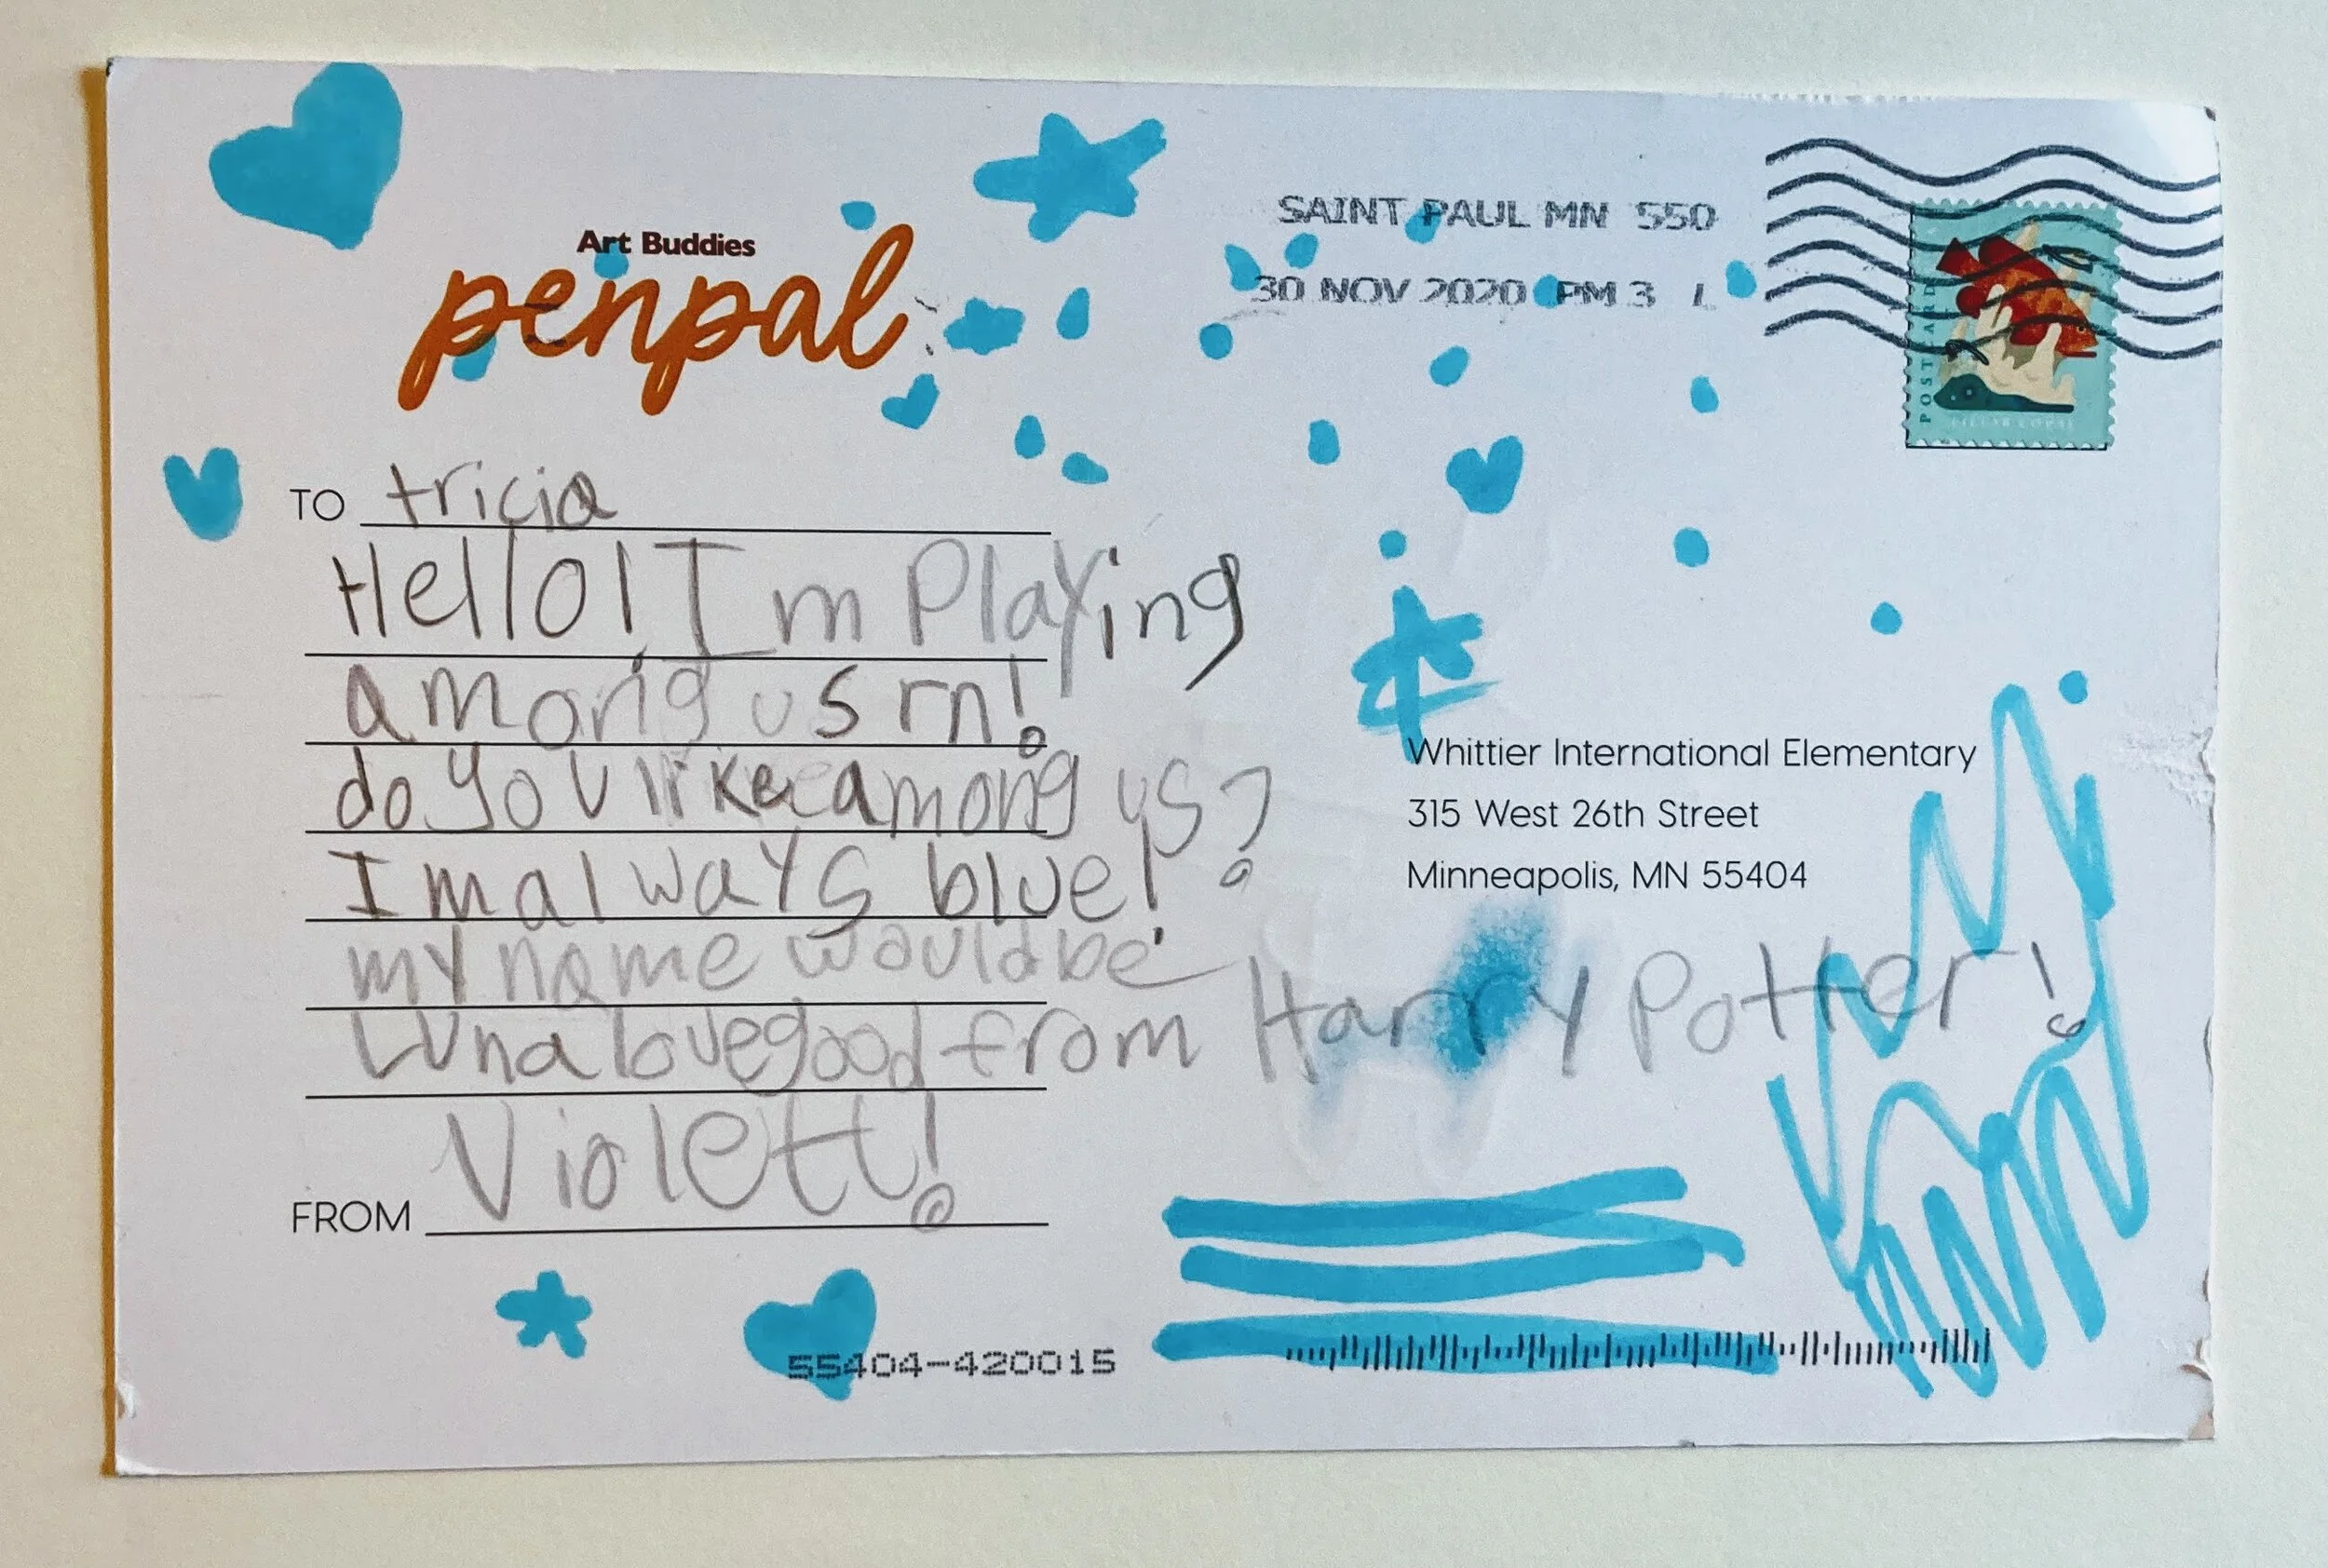 Art Buddies
penpal
SAINT PAUL MN 550
30 NOV 2020 PM 3 L
POSTCARD
PILLAR CORAL
TO tricia
Hello! I'm Playing
among us rn!
do you like among us?
I'm always blue!
my name would be
Luna lovegood from Harry Potter!
FROM Violett!
Whittier International Elementary
315 West 26th Street
Minneapolis, MN 55404
55404-420015